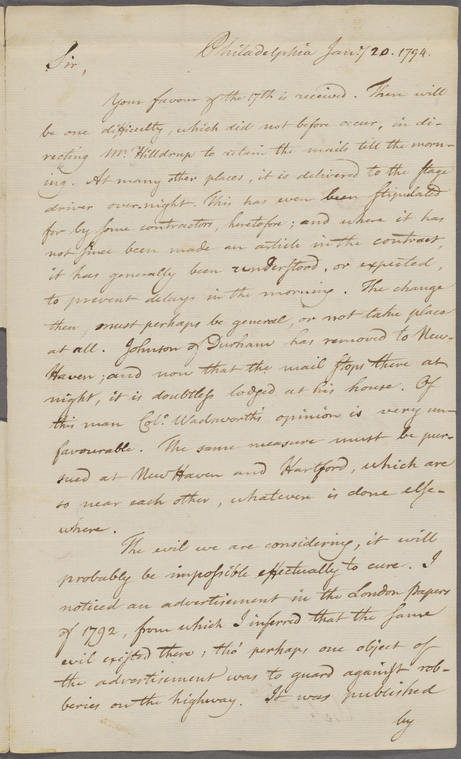 Philadelphia Jany 20. 1794.
Sir,
Your favour of the 17th is received. There will
be one difficulty, which did not before occur, in di-
recting Mr. Hilldrup to retain the mails till the morn-
ing. At many other places, it is delivered to the stage
driver over-night. This has even been stipulated
for by some contractors, heretofore; and where it has
not since been made an article in the contract,
it has generally been understood, or expected,
to prevent delays in the morning. The change
then, must perhaps be general, or not take place
at all. Johnson of Durham has removed to New-
Haven; and now that the mail stops there at
night, it is doubtless lodged at his house. Of
this man Colo. Wadsworth's opinion is very un-
favourable. The same measure must be pur-
sued at New Haven and Hartford, which are
so near each other, whatever is done else-
where.
The evil we are considering, it will
probably be impossible effectually to cure. I
noticed an advertisement in the London papers
of 1792, from which I inferred that the same
evil existed there; tho' perhaps one object of
the advertisement was to guard against rob-
beries on the highway. It was published
by